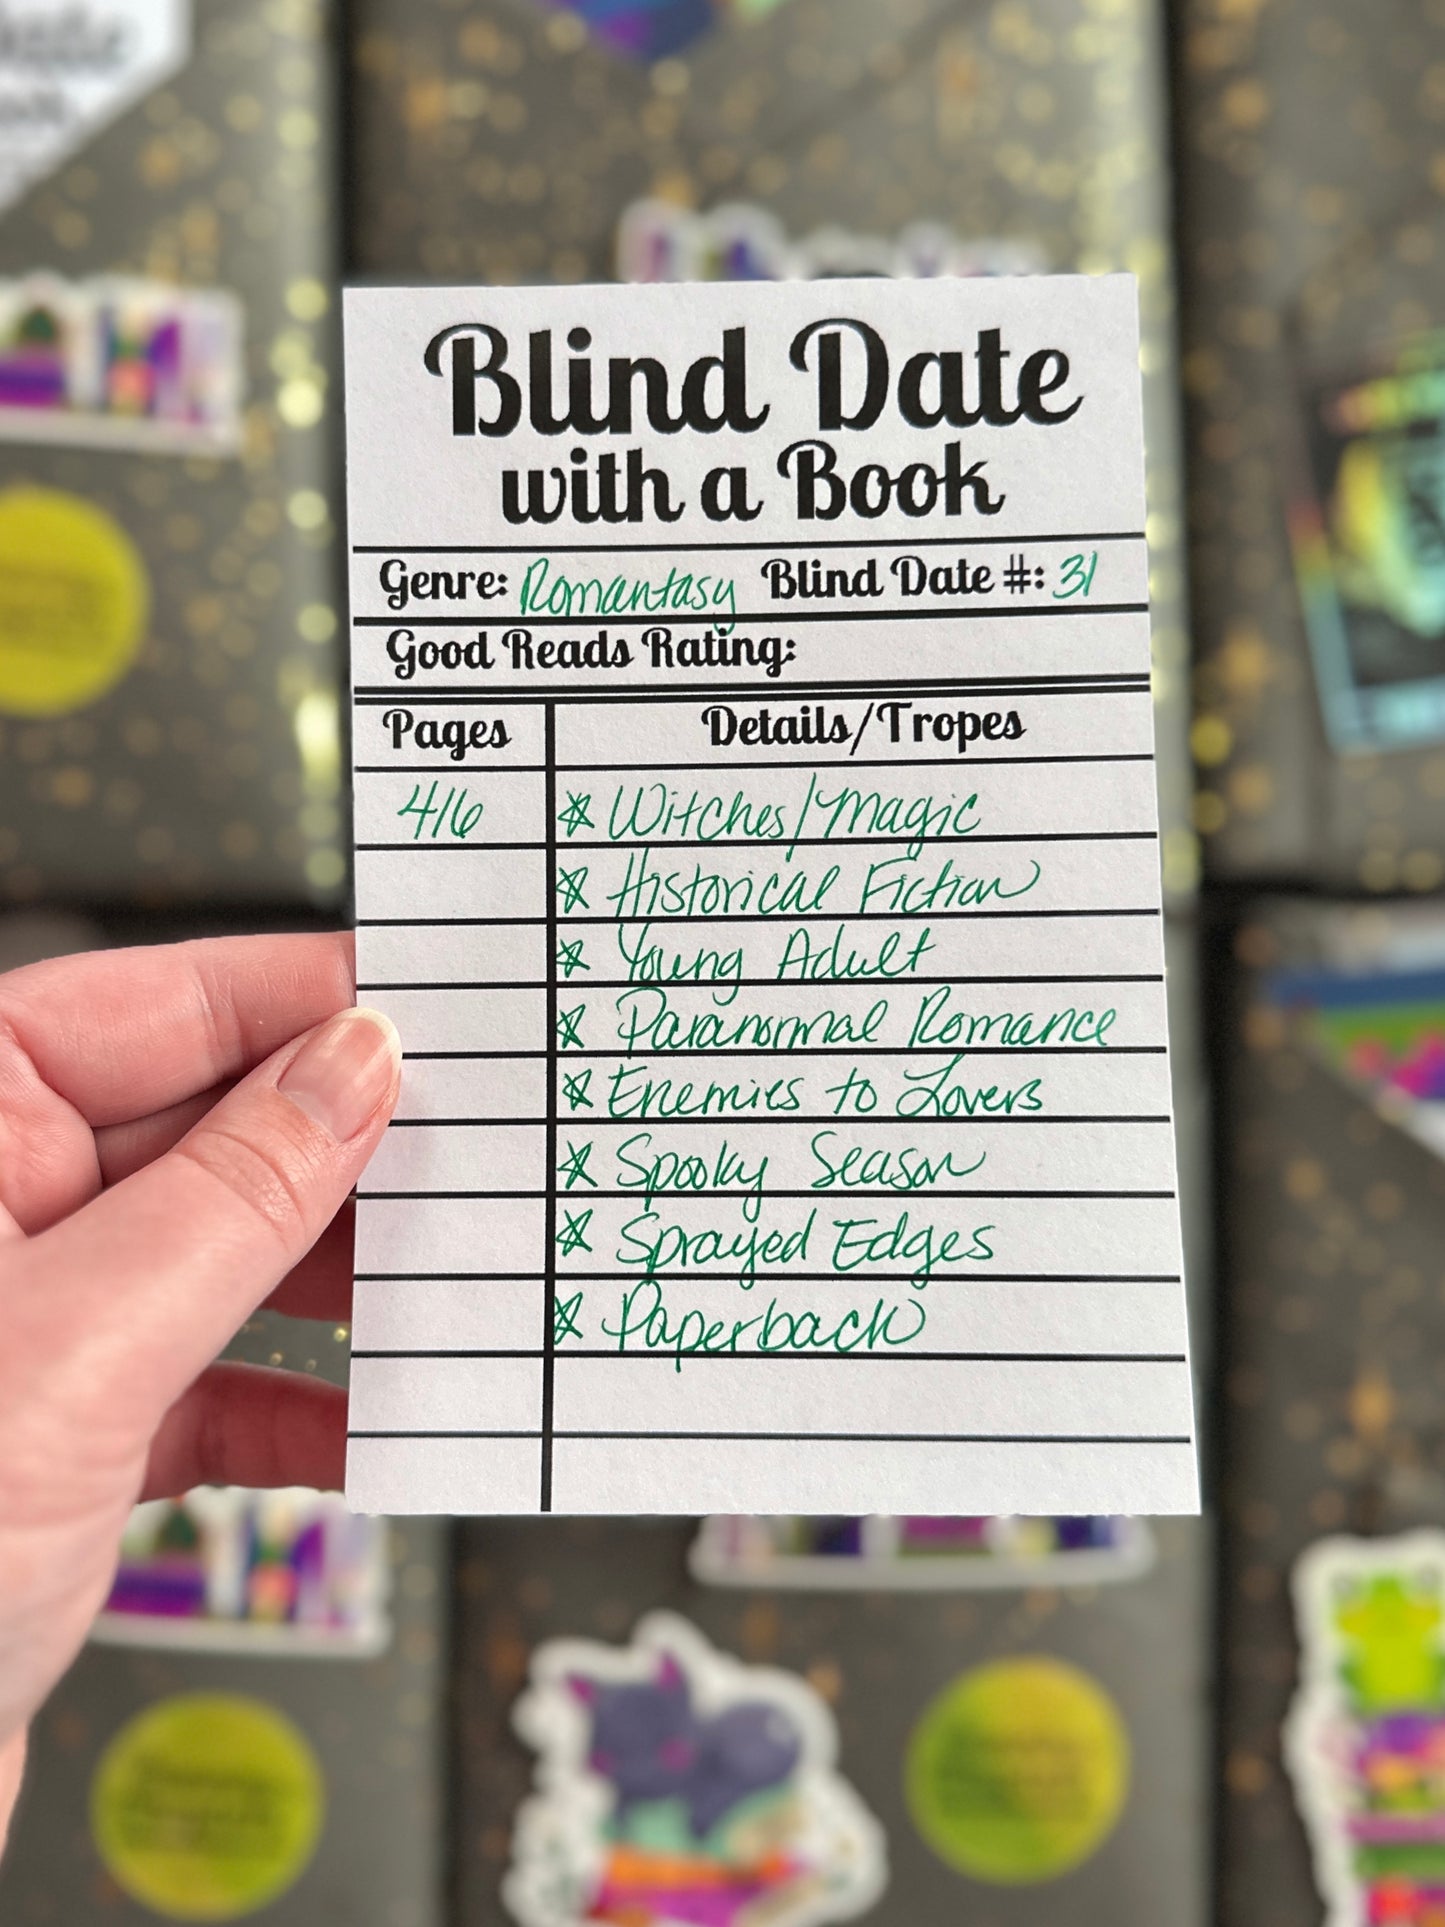 Blind Date
with a Book
Genre: Romantasy Blind Date #: 31
Good Reads Rating:
Pages Details/Tropes
416 ☆ Witches/Magic
☆ Historical Fiction
☆ Young Adult
☆ Paranormal Romance
☆ Enemies to Lovers
☆ Spooky Season
☆ Sprayed Edges
☆ Paperback